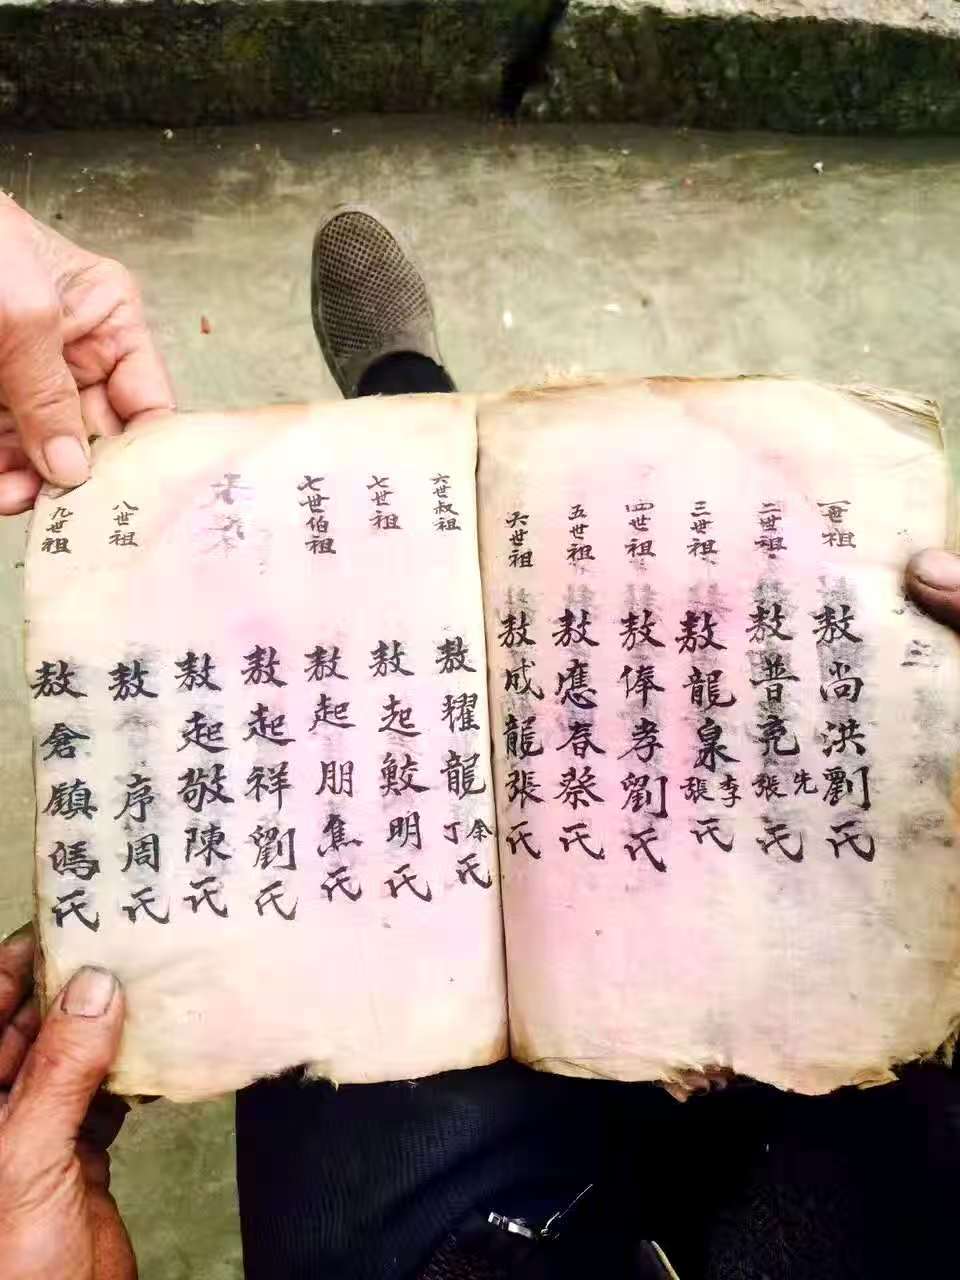 一世祖 敖尚洪劉氏
二世祖 敖普亮先張氏
三世祖 敖龍泉李張氏
四世祖 敖俸孝劉氏
五世祖 敖應春蔡氏
六世祖 敖成龍張氏
六世叔祖 敖耀龍余丁氏
七世祖 敖起鮫明氏
七世伯祖 敖起朋焦氏
敖起祥劉氏
敖起敬陳氏
八世祖 敖序周氏
九世祖 敖倉鎮馮氏